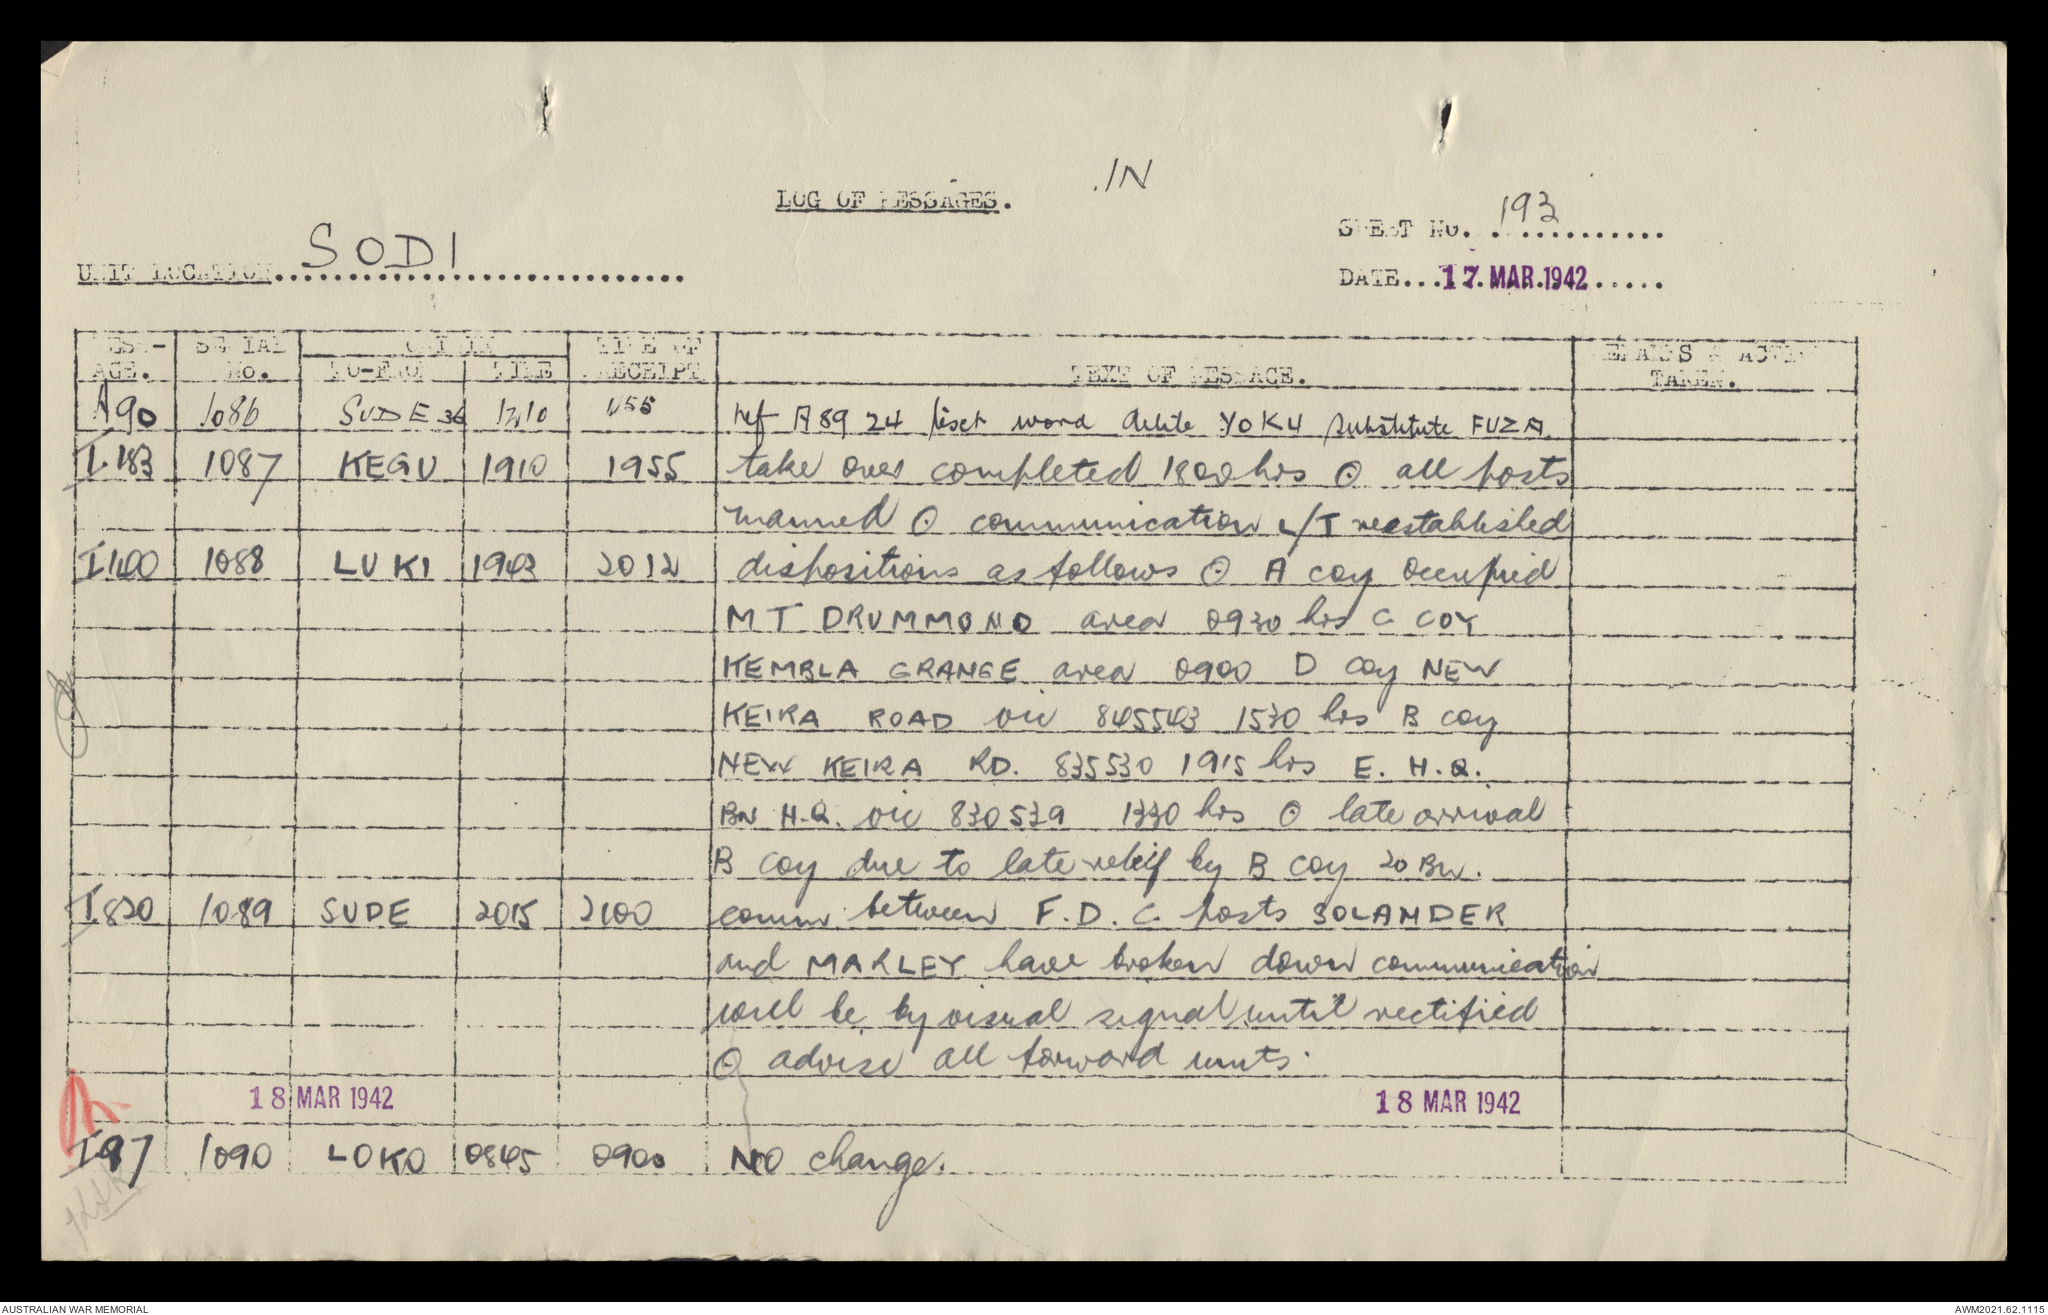 .IN
LOG OF MESSAGES.
SHEET NO. 193
UNIT LOCATION SODI
DATE 17 MAR 1942
MESS- SERIAL ORIGIN TIME OF REMARKS & ACTION
AGE. No. TO-FROM TIME RECEIPT TEXT OF MESSAGE. TAKEN.
A90 1086 SUDE 1455 ref A89 24 first word delete YOKU substitute FUZA
I.183 1087 KEGU 1910 1955 take over completed 1800 hrs ⊙ all posts
manned ⊙ communication L/T reestablished
I140 1088 LUKI 1943 2012 dispositions as follows ⊙ A coy occupied
MT DRUMMOND area 0930 hrs C COY
KEMBLA GRANGE area 0900 D coy NEW
KEIRA ROAD vic 845543 1530 hrs B coy
NEW KEIRA RD. 835530 1915 hrs E. H.Q.
BN H.Q. vic 830539 1330 hrs ⊙ late arrival
B coy due to late relief by B coy 20 BN.
I820 1089 SUDE 2015 2100 comm between F.D.C. posts SOLANDER
and MARLEY have broken down communication
will be by visual signal until rectified
⊙ advise all forward units.
18 MAR 1942 18 MAR 1942
I97 1090 LOKO 0845 0900 NO change.
AUSTRALIAN WAR MEMORIAL AWM2021.62.1115